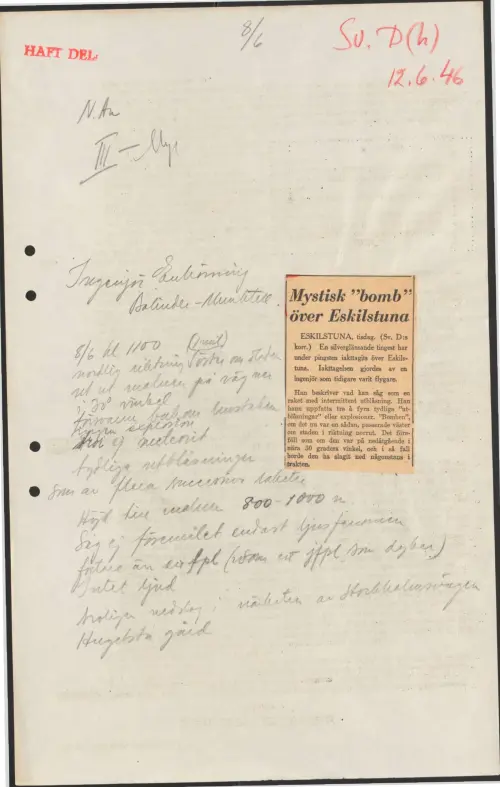 HAFT DEL.
8/6
Sv. D(h)
12.6.46
N.An
III –
Ingenjör Enhörning
Bolinder-Munktell
Mystisk "bomb"
över Eskilstuna
ESKILSTUNA, tisdag. (Sv. D:s
korr.) En silverglänsande tingest har
under pingsten iakttagits över Eskils-
tuna. Iakttagelsen gjordes av en
ingenjör som tidigare varit flygare.
Han beskriver vad han såg som en
raket med intermittent utblåsning. Han
hann uppfatta två à fyra tydliga "ut-
blåsningar" eller explosioner. "Bomben",
om det nu var en sådan, passerade väster
om staden i riktning norrut. Det före-
föll som om den var på nedåtgående i
nära 30 graders vinkel, och i så fall
borde den ha slagit ned någonstans i
trakten.
8/6 kl 1100
nordlig riktning väster om staden
set ut på väg ner
30° vinkel
explosion
ej meteorit
tydliga utblåsningar
Som av flera raketer
Höjd till 800-1000 m
Såg ej föremålet endast ljusfenomen
än en fpl (som en jfpl som dyker)
Intet ljud
Troligen nedslag i närheten av Stockholmsvägen
Hugelsta gård